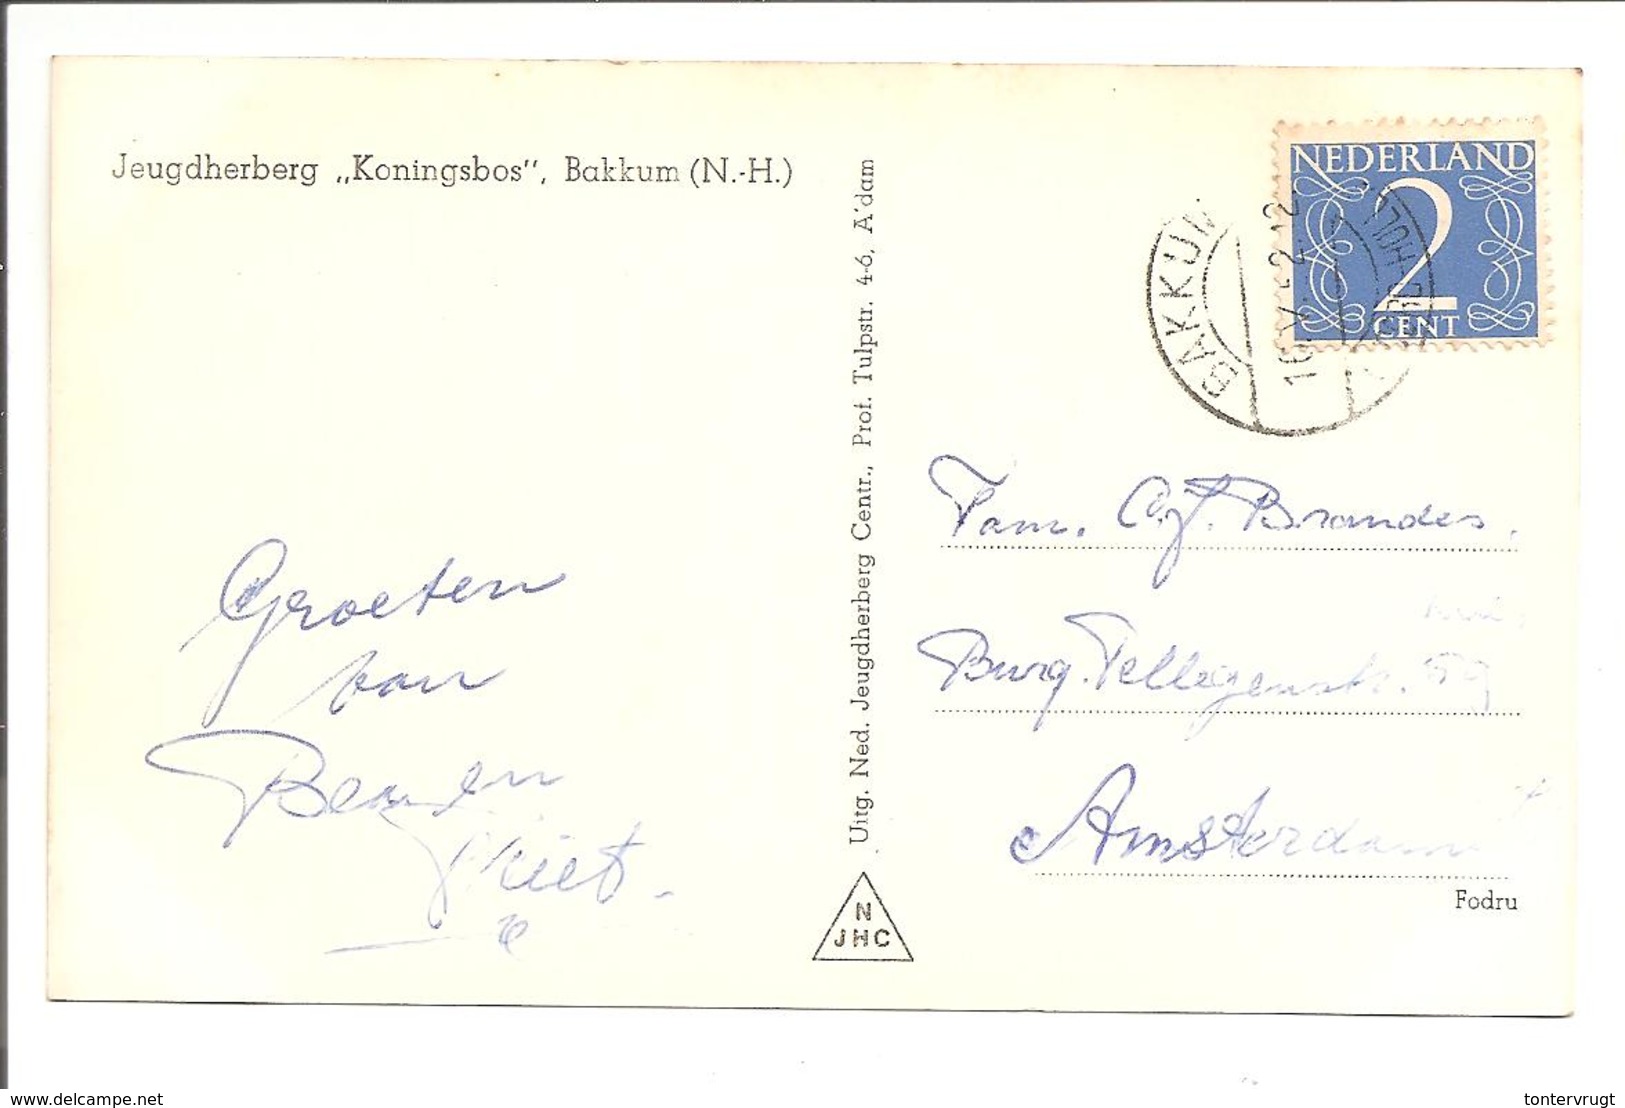 Jeugdherberg „Koningsbos", Bakkum (N.-H.)
Groeten
van
Ben en
Riet.
Uitg. Ned. Jeugdherberg Centr., Prof. Tulpstr. 4-6, A'dam
N
JHC
NEDERLAND
2
CENT
BAKKUM
Fam. C.J. Brandes.
Burg. Tellegenstr. 59
Amsterdam
Fodru
delcampe.net
tontervrugt